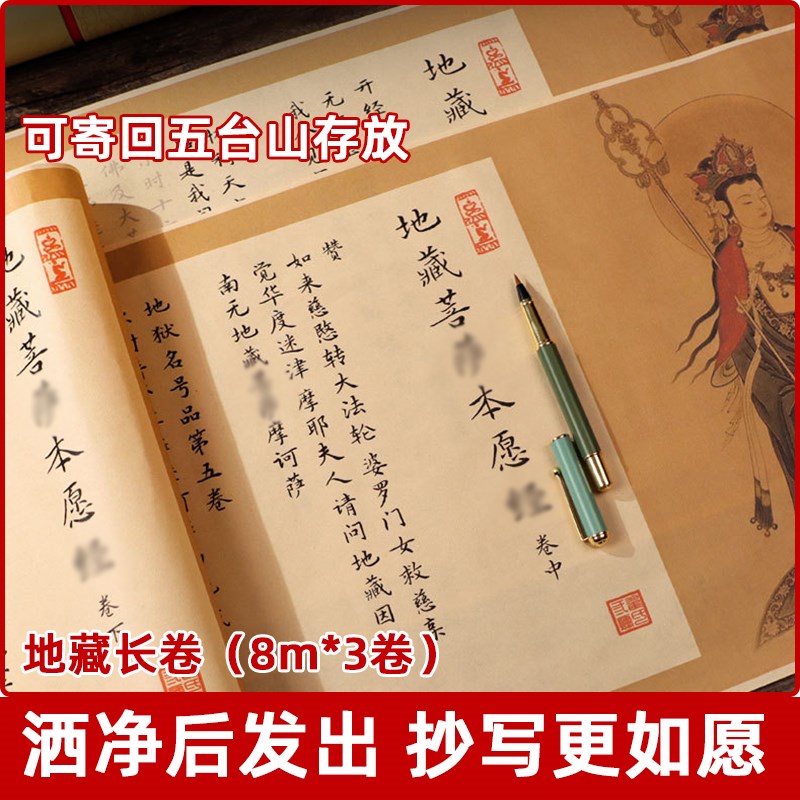 可寄回五台山存放
地藏
开经
无
地藏菩本愿
卷中
赞
如来慈愍转大法轮婆罗门女救慈亲
觉华度迷津摩耶夫人请问地藏因
南无地藏摩诃萨
地狱名号品第五卷
地藏菩本愿
卷下
地藏长卷（8m*3卷）
洒净后发出 抄写更如愿